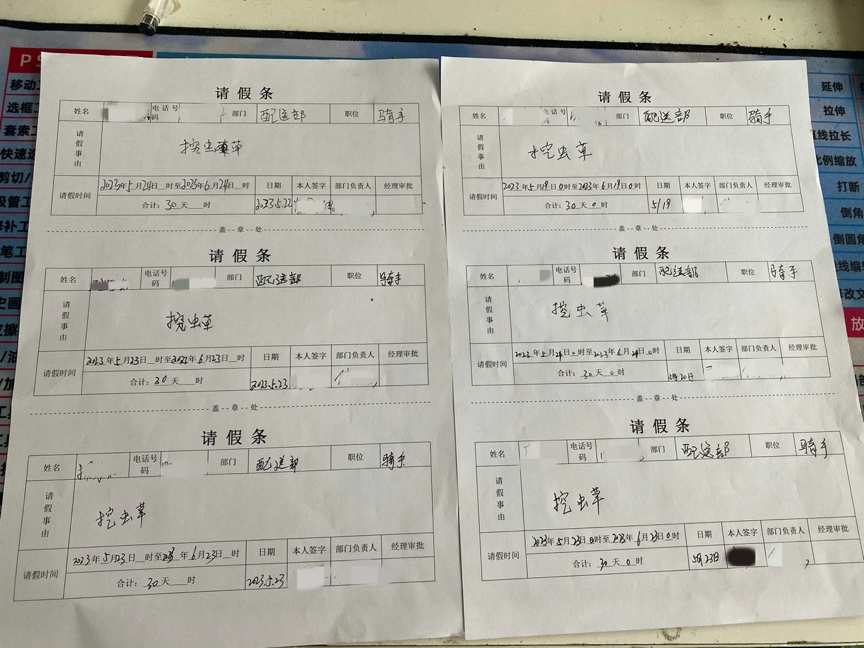 请假条
姓名 电话号 部门 配送部 职位 骑手
请假事由 挖虫草
请假时间 2023年5月24日__时至2023年6月24日__时 日期 本人签字 部门负责人 经理审批
合计：30天__时 2023.5.22
盖--章--处
请假条
姓名 电话号码 部门 配送部 职位 骑手
请假事由 挖虫草
请假时间 2023年5月23日__时至2023年6月23日__时 日期 本人签字 部门负责人 经理审批
合计：30天__时 2023.5.23
盖--章--处
请假条
姓名 电话号码 部门 配送部 职位 骑手
请假事由 挖虫草
请假时间 2023年5月23日__时至2023年6月23日__时 日期 本人签字 部门负责人 经理审批
合计：30天__时 2023.5.23
请假条
姓名 电话号 部门 配送部 职位 骑手
请假事由 挖虫草
请假时间 2023年5月19日0时至2023年6月19日0时 日期 本人签字 部门负责人 经理审批
合计：30天0时 5/19
盖--章--处
请假条
姓名 电话号码 部门 配送部 职位 骑手
请假事由 挖虫草
请假时间 2023年5月 日0时至2023年6月 日0时 日期 本人签字 部门负责人 经理审批
合计：30天0时
盖--章--处
请假条
姓名 电话号码 部门 配送部 职位 骑手
请假事由 挖虫草
请假时间 2023年5月23日0时至2023年6月23日0时 日期 本人签字 部门负责人 经理审批
合计：30天0时 5月23日
PS
移动工
选框工
套索工
快速选
剪切/
吸管工
修补工
笔工
制图
史画
延伸
拉伸
线拉长
比例缩放
打断
倒角
倒圆角
线编
改文
放